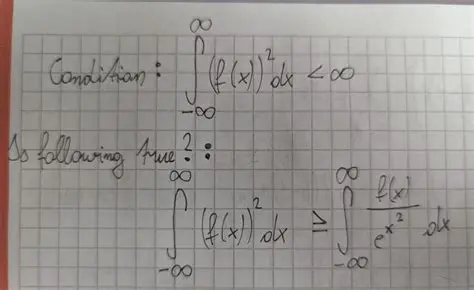 Condition: ∫_{-∞}^{∞} (f(x))² dx < ∞
Is following true?:
∫_{-∞}^{∞} (f(x))² dx ≥ ∫_{-∞}^{∞} f(x)/e^{x²} dx